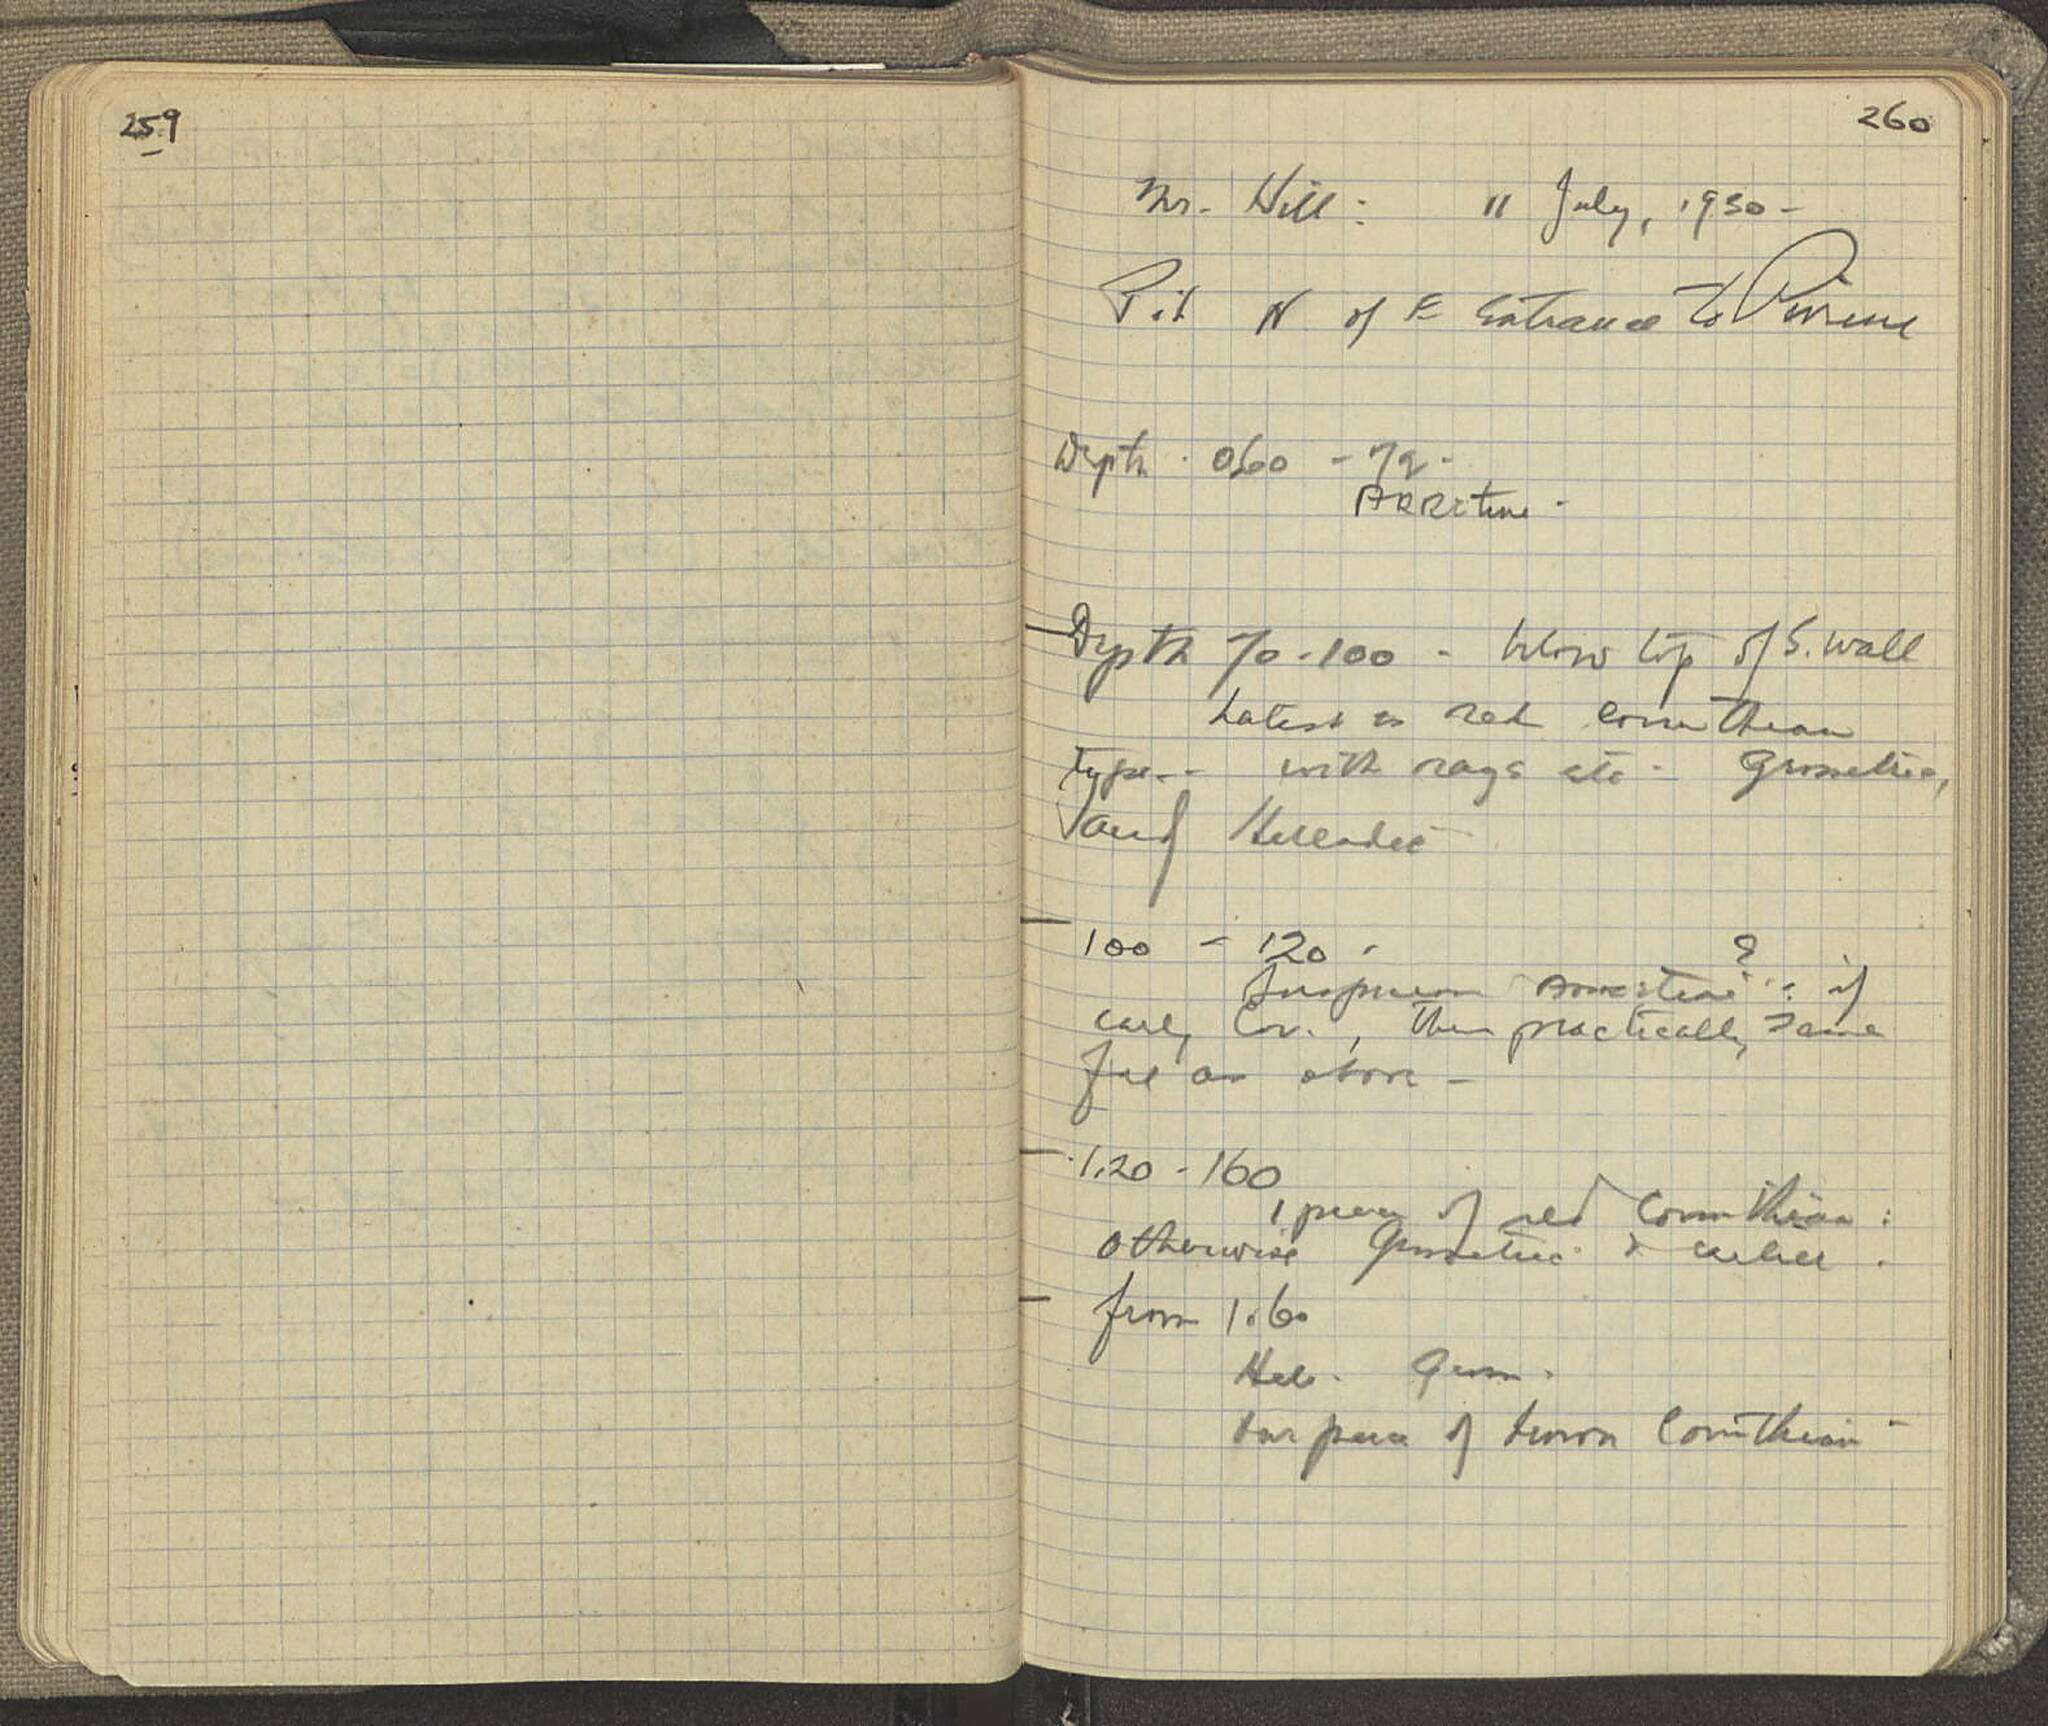 259
260
Mr. Hill: 11 July, 1930 -
Pit N. of E Entrance to Pirene
Depth . 0.60 - 70 -
ARRetine -
Depth 70 - 100 - below top of S. Wall
Latest is red Corinthian
type -- with rays etc - Geometric,
and Helladic
100 - 120 -
?
if
early Cor., then practically same
fill as above -
1.20 - 160
1 piece of red Corinthian :
otherwise Geometric & earlier .
from 1.60
Hel. Geom.
One piece of brown Corinthian -